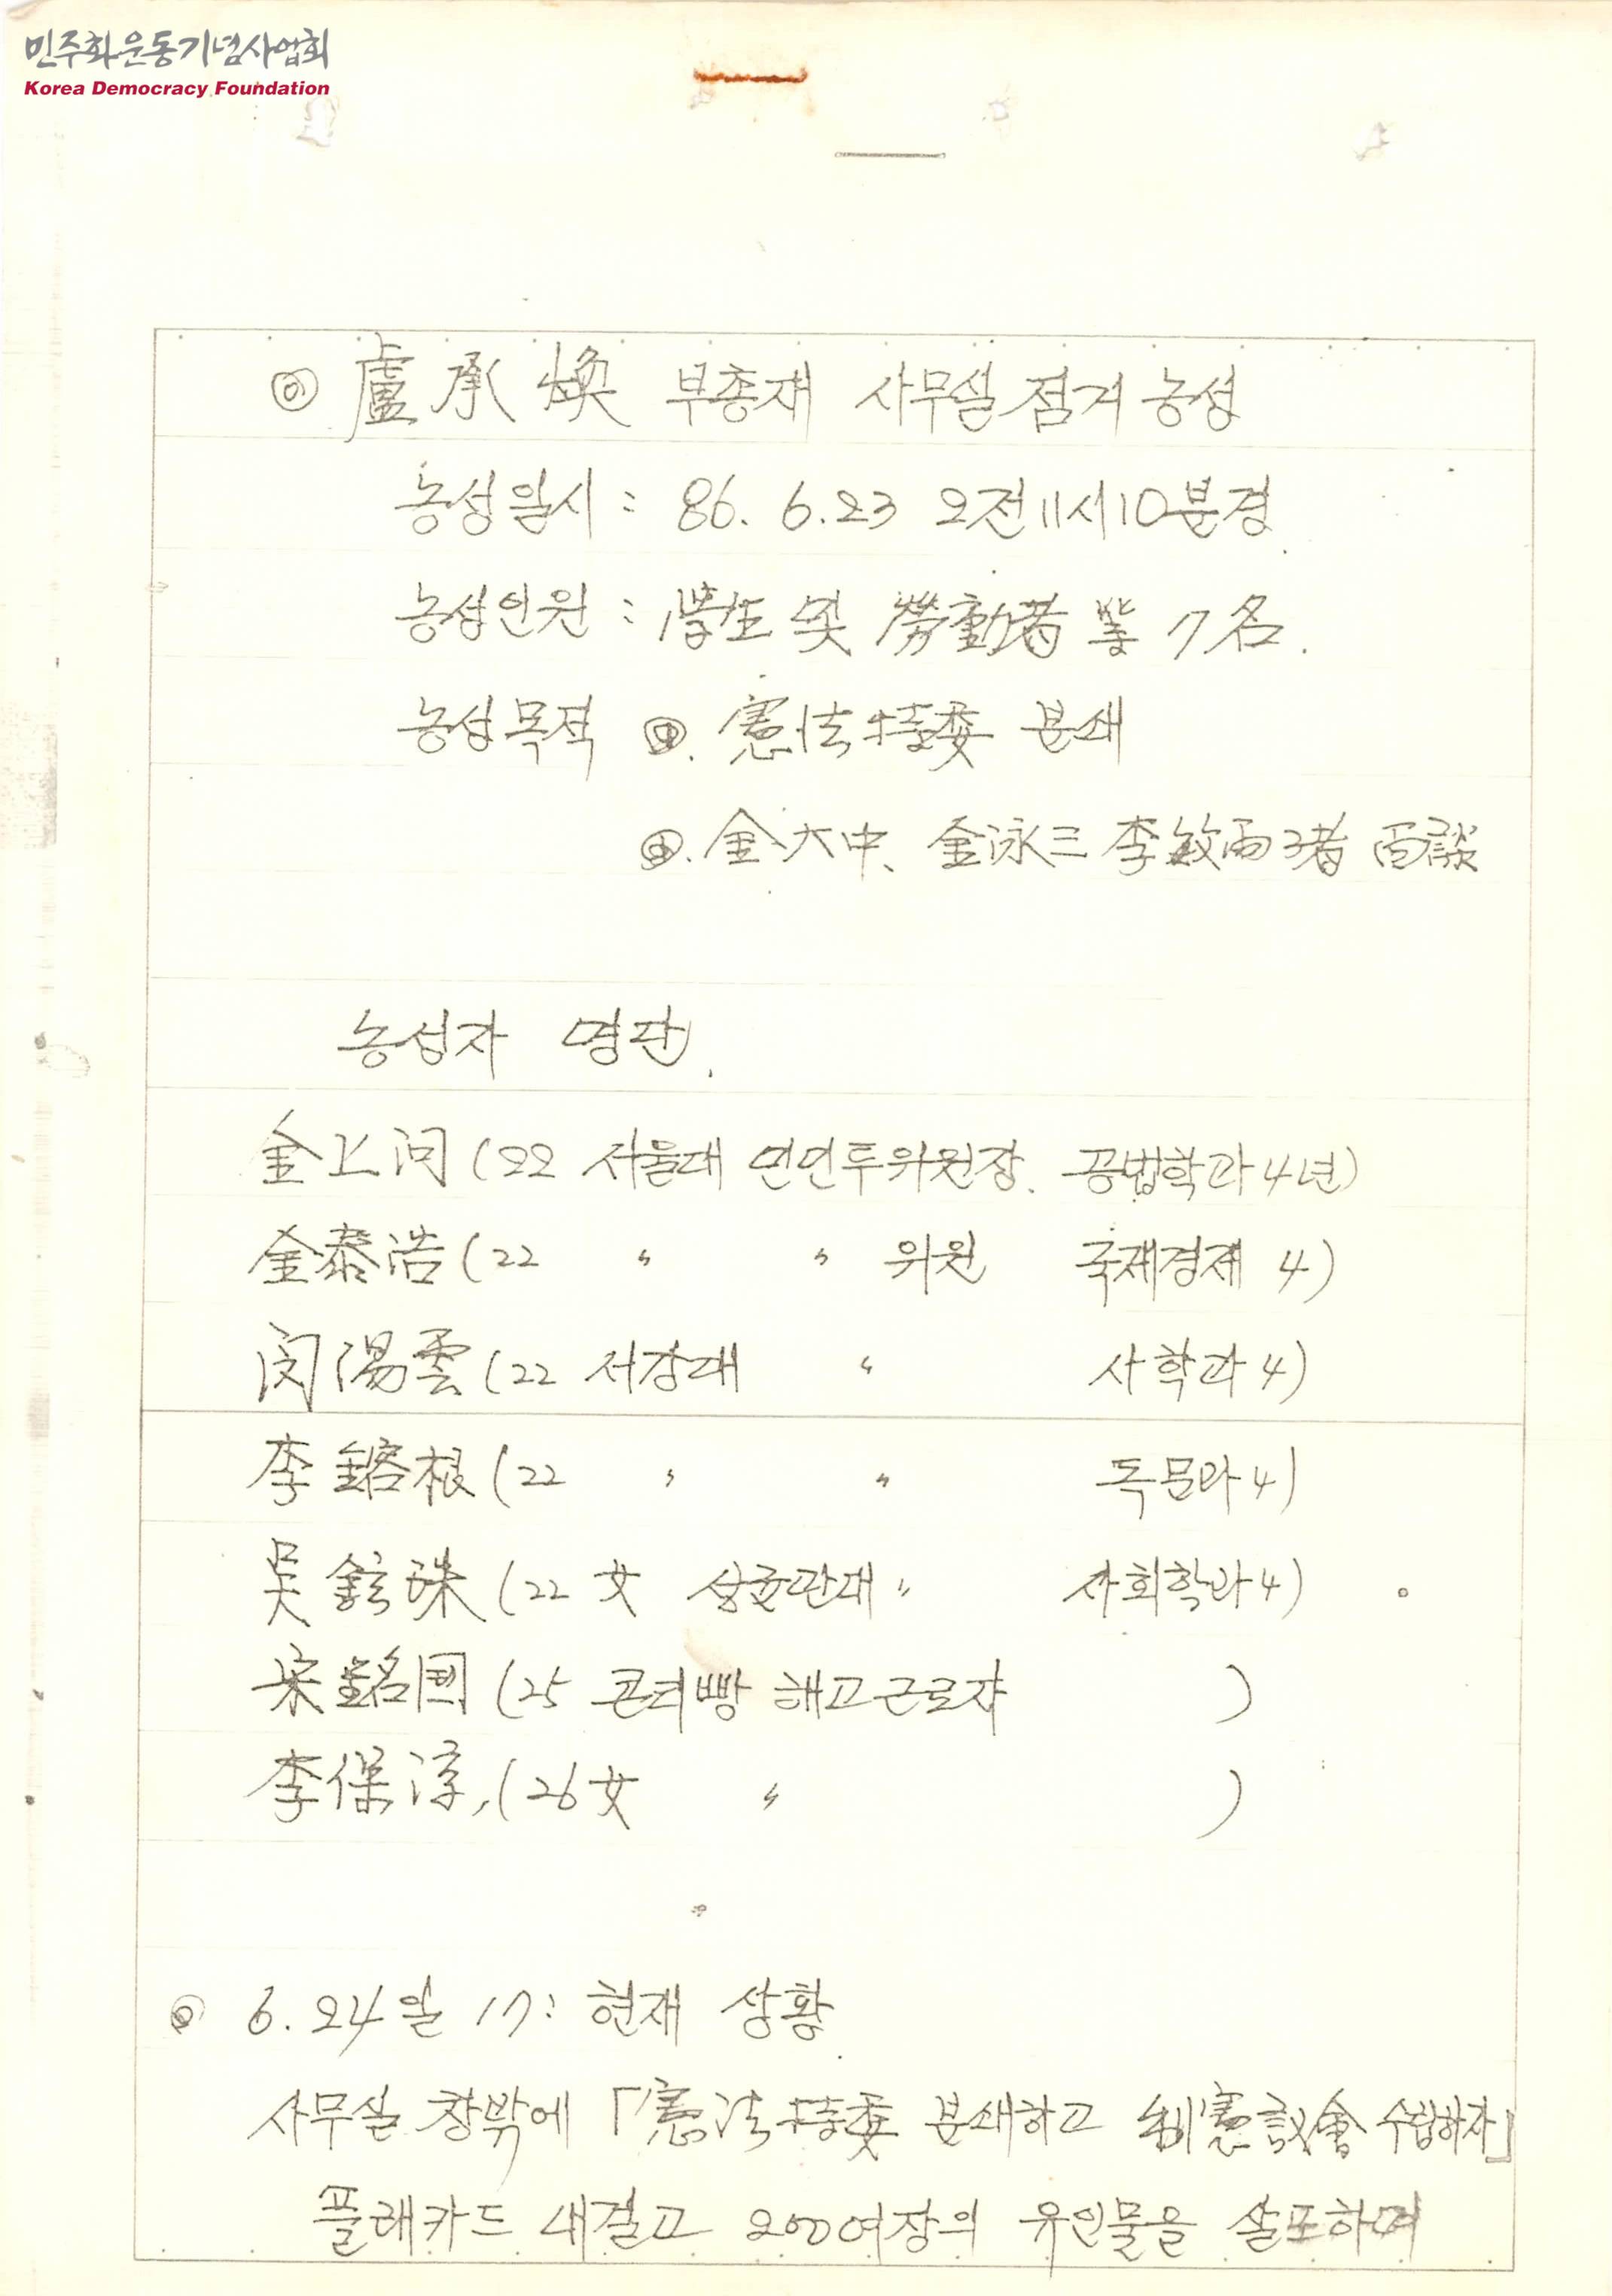 민주화운동기념사업회
Korea Democracy Foundation
◎ 盧承煥 부총재 사무실 점거 농성
농성일시 : 86. 6. 23 오전11시10분경
농성인원 : 學生 및 勞動者 等 7名.
농성목적 ◉. 憲法特委 분쇄
◉. 金大中、金泳三 李敏雨 3者 面談
농성자 명단.
金上問 (22 서울대 민민투위원장. 공법학과 4년)
金泰浩 (22 〃 〃 위원 국제경제 4)
閔湯雲 (22 서강대 〃 사학과 4)
李鎔根 (22 〃 〃 독문과 4)
吳鉉珠 (22 女 성균관대 〃 사회학과 4)
宋銘國 (25 콘티빵 해고근로자 )
李保淳, (26 女 〃 )
◎ 6. 24일 17: 현재 상황
사무실 창밖에 「憲法特委 분쇄하고 制憲議會 수립하자」
플래카드 내걸고 200여장의 유인물을 살포하며